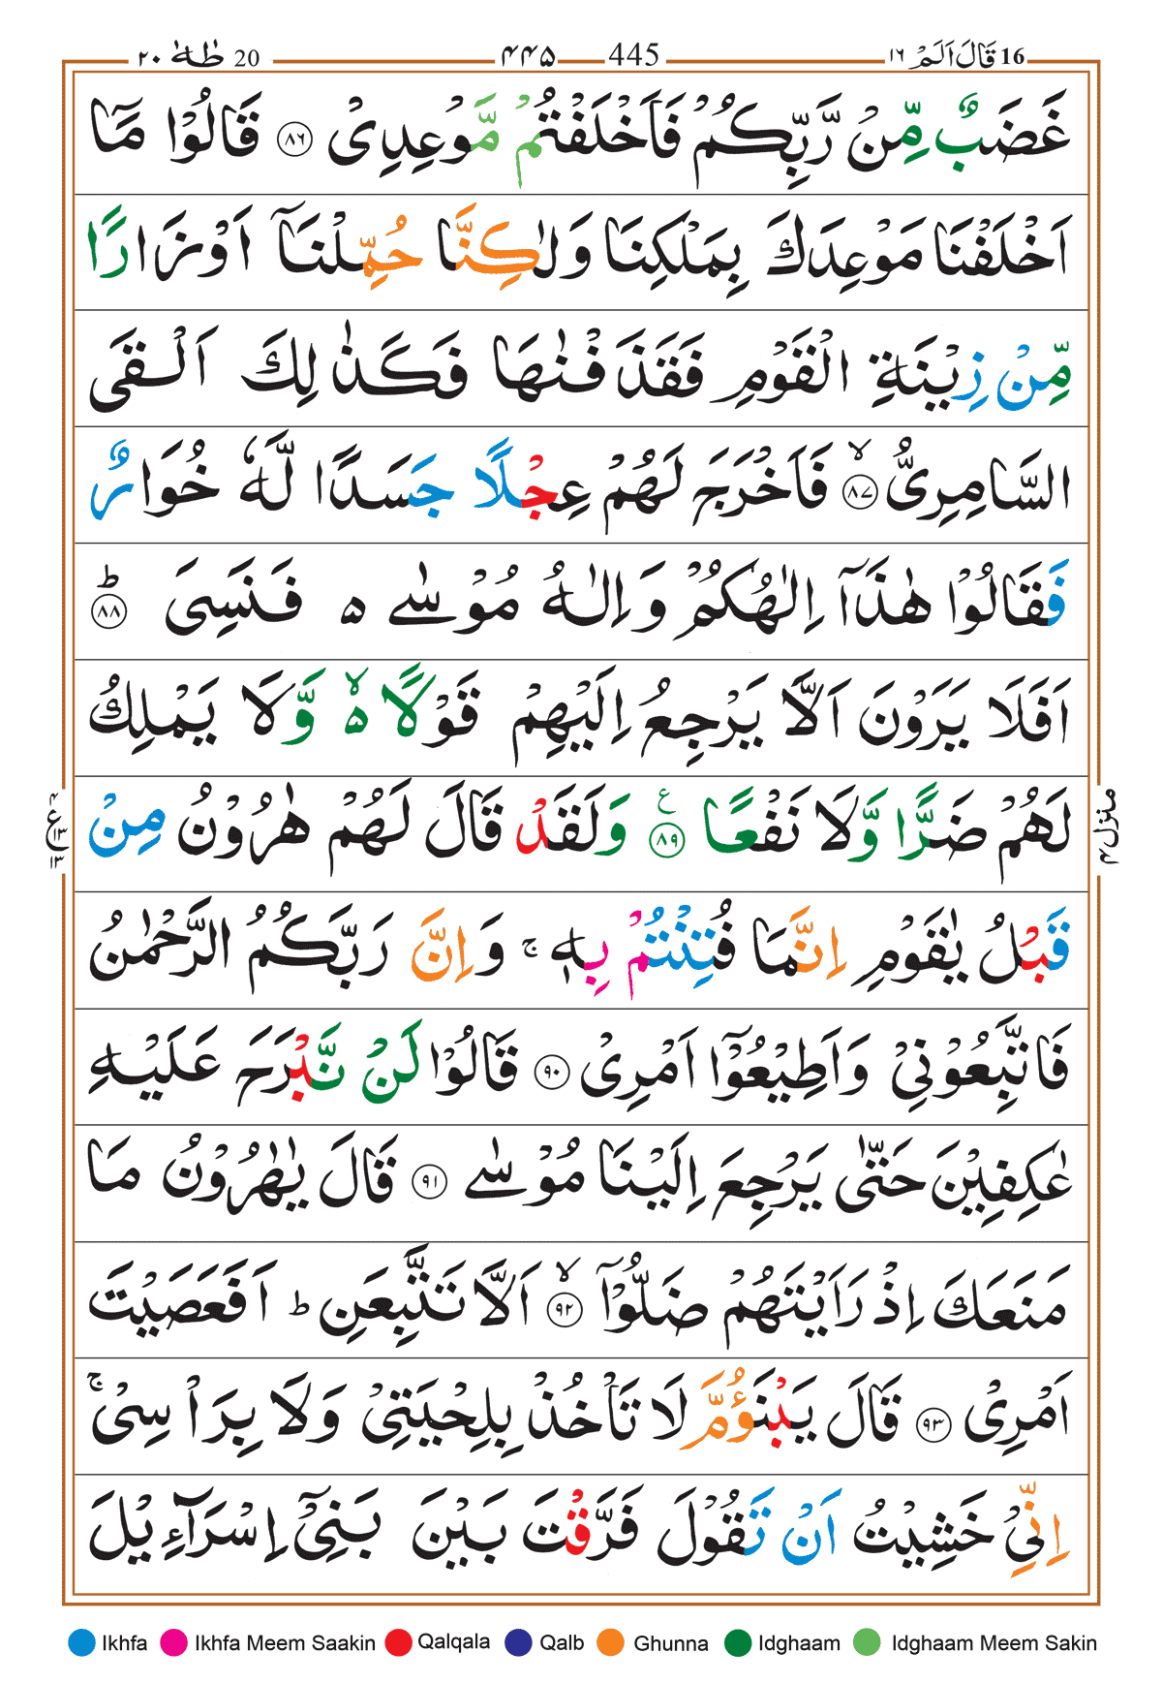 ٢٠ طٰهٰ 20 ٤٤٥ 445 ١٦ قَالَ اَلَمْ 16
غَضَبٌ مِّنْ رَّبِّكُمْ فَاَخْلَفْتُمْ مَّوْعِدِىْ ﴿٨٦﴾ قَالُوْا مَاۤ
اَخْلَفْنَا مَوْعِدَكَ بِمَلْكِنَا وَلٰكِنَّا حُمِّلْنَاۤ اَوْزَارًا
مِّنْ زِيْنَةِ الْقَوْمِ فَقَذَفْنٰهَا فَكَذٰلِكَ اَلْقَى
السَّامِرِىُّ ۙ﴿٨٧﴾ فَاَخْرَجَ لَهُمْ عِجْلًا جَسَدًا لَّهٗ خُوَارٌ
فَقَالُوْا هٰذَاۤ اِلٰهُكُمْ وَاِلٰهُ مُوْسٰى ە فَنَسِىَ ؕ﴿٨٨﴾
اَفَلَا يَرَوْنَ اَلَّا يَرْجِعُ اِلَيْهِمْ قَوْلًا ە ۙ وَّلَا يَمْلِكُ
لَهُمْ ضَرًّا وَّلَا نَفْعًا ﴿٨٩﴾ ع وَلَقَدْ قَالَ لَهُمْ هٰرُوْنُ مِنْ
قَبْلُ يٰقَوْمِ اِنَّمَا فُتِنْتُمْ بِهٖ ۚ وَاِنَّ رَبَّكُمُ الرَّحْمٰنُ
فَاتَّبِعُوْنِىْ وَاَطِيْعُوْۤا اَمْرِىْ ﴿٩٠﴾ قَالُوْا لَنْ نَّبْرَحَ عَلَيْهِ
عٰكِفِيْنَ حَتّٰى يَرْجِعَ اِلَيْنَا مُوْسٰى ﴿٩١﴾ قَالَ يٰهٰرُوْنُ مَا
مَنَعَكَ اِذْ رَاَيْتَهُمْ ضَلُّوْۤا ۙ﴿٩٢﴾ اَلَّا تَتَّبِعَنِ ؕ اَفَعَصَيْتَ
اَمْرِىْ ﴿٩٣﴾ قَالَ يَبْنَؤُمَّ لَا تَاْخُذْ بِلِحْيَتِىْ وَلَا بِرَاْسِىْ ۚ
اِنِّىْ خَشِيْتُ اَنْ تَقُوْلَ فَرَّقْتَ بَيْنَ بَنِىْۤ اِسْرَآءِيْلَ
منزل ٤
ع ١٣ ١٣
Ikhfa Ikhfa Meem Saakin Qalqala Qalb Ghunna Idghaam Idghaam Meem Sakin